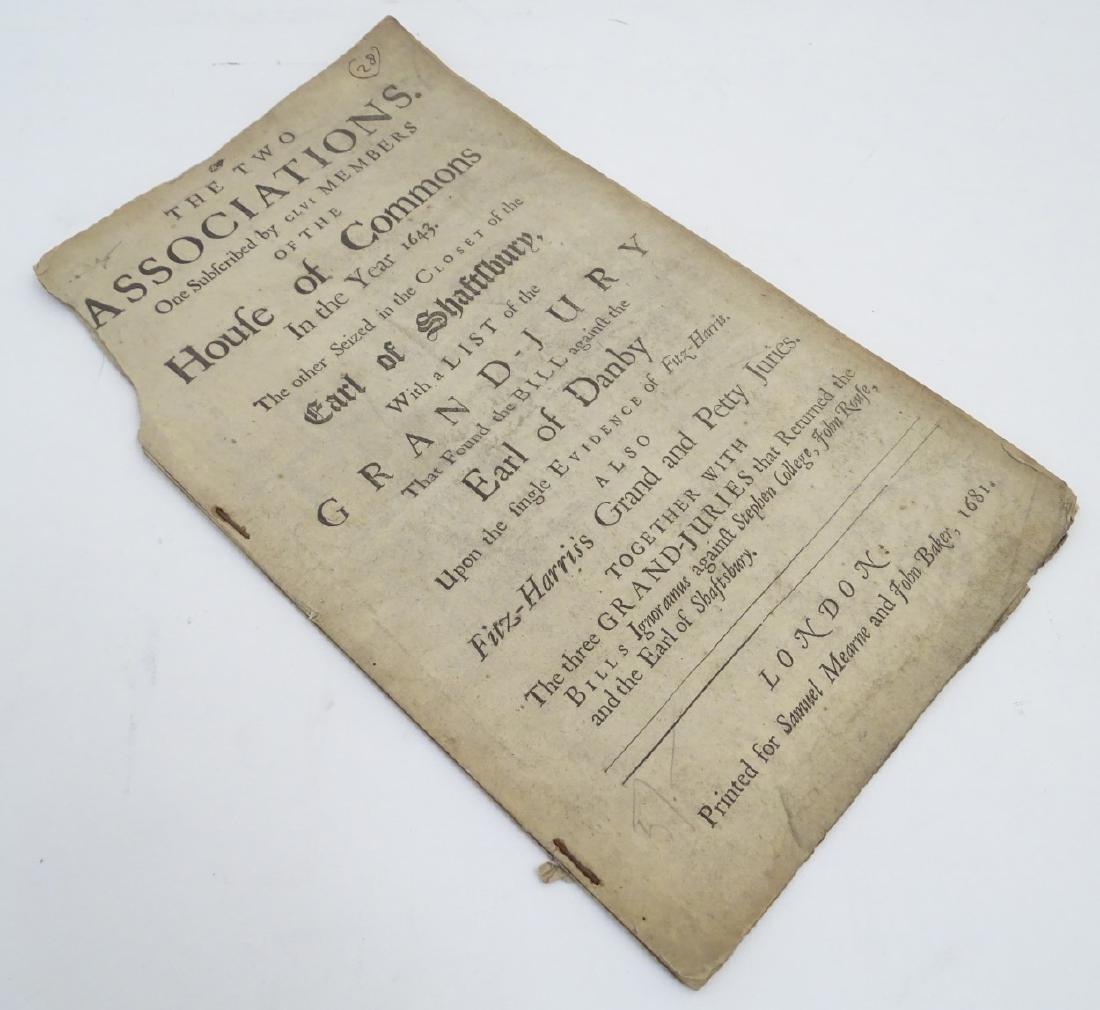 28
THE TWO
ASSOCIATIONS.
One Subſcribed by CLVI MEMBERS
OF THE
Houſe of Commons
In the Year 1643.
The other Seized in the CLOSET of the
Earl of Shaftſbury,
With a LIST of the
GRAND-JURY
That Found the BILL againſt the
Earl of Danby
Upon the ſingle EVIDENCE of Fitz-Harris.
ALSO
Fitz-Harris's Grand and Petty Juries.
TOGETHER WITH
The three GRAND-JURIES that Returned the
BILLS Ignoramus againſt Stephen College, John Rouſe,
and the Earl of Shaftsbury.
LONDON:
Printed for Samuel Mearne and John Baker, 1681.